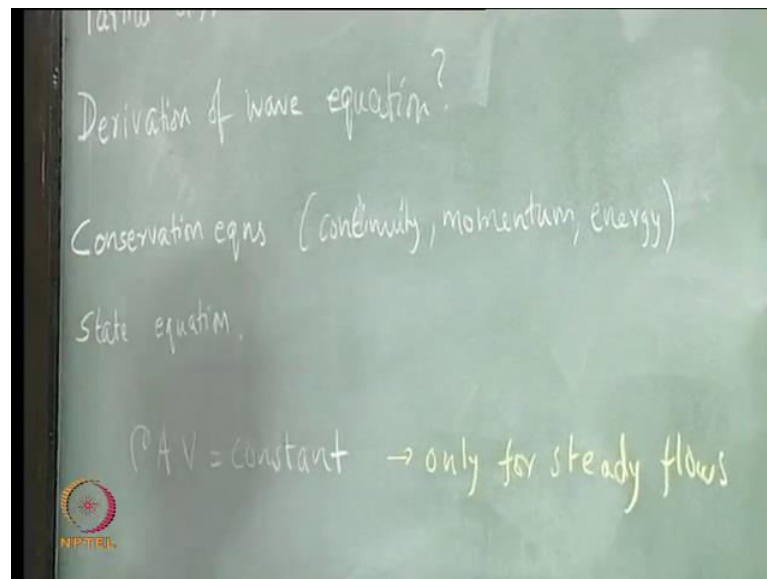 Derivation of wave equation?
Conservation eqns (continuity, momentum, energy)
State equation.
ρAV = constant → only for steady flows
NPTEL